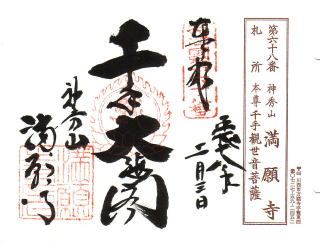 第六十八番 神秀山 満願寺
札所 本尊 千手観世音菩薩
奉拝
二月三日
千手大悲閣
神秀山
満願寺